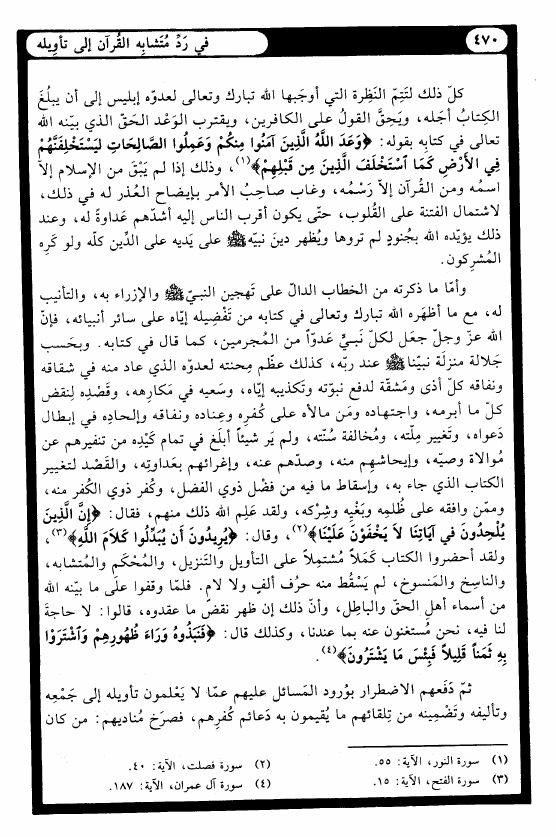 ٤٧٠
في رَدِّ مُتَشابِه القُرآن إلى تأوِيله
كلّ ذلك لتَتِمّ النَظِرة التي أوجَبها الله تبارك وتعالى لعدوّه إبليس إلى أن يبلُغَ
الكِتابُ أجلَه، ويَحِقَّ القولُ على الكافرين، ويقترب الوَعْد الحَقّ الذي بيّنه الله
تعالى في كتابه بقوله: ﴿وَعَدَ اللَّهُ الَّذِينَ آمَنُوا مِنكُمْ وَعَمِلُوا الصَّالِحَاتِ لَيَسْتَخْلِفَنَّهُمْ
فِي الأَرْضِ كَمَا ٱسْتَخْلَفَ الَّذِينَ مِن قَبْلِهِمْ﴾(١)، وذلك إذا لم يَبْقَ من الإسلام إلاّ
اسمُه ومن القُرآن إلاّ رَسْمُه، وغاب صاحِبُ الأمر بإيضاح العُذر له في ذلك،
لاشتمال الفتنة على القُلوب، حتّى يكون أقرب الناس إليه أشدّهم عَداوةً له، وعند
ذلك يؤيّده الله بجُنودٍ لم تروها ويُظهر دينَ نبيّه ﷺ على يديه على الدِّين كلّه ولو كَرِه
المُشرِكون.
وأمّا ما ذكرته من الخطاب الدالّ على تَهجين النبيّ ﷺ والإزراء به، والتأنيب
له، مع ما أظهَره الله تبارك وتعالى في كتابه من تَفْضِيله إيّاه على سائر أنبيائه، فإنّ
الله عزّ وجلّ جعَل لكلّ نَبيٍّ عَدوّاً من المُجرمين، كما قال في كتابه. وبحَسب
جَلالة منزلة نبيّنا ﷺ عند ربّه، كذلك عظّم مِحنته لعدوّه الذي عاد منه في شقاقه
ونفاقه كلّ أذى ومَشقّة لدفع نبوّته وتكذيبه إيّاه، وسَعيه في مَكارِهه، وقَصْدِه لِنقض
كلّ ما أبرمه، واجتهاده ومَن مالأه على كُفرِه وعِناده ونفاقه وإلحادِه في إبطال
دَعواه، وتَغيير مِلّته، ومُخالفة سُنّته، ولم يَر شيئاً أبلَغ في تمام كَيْدِه من تنفيرهم عن
مُوالاة وصيّه، وإيحاشِهم منه، وصدّهم عنه، وإغرائهم بعَداوتِه، والقَصْد لتغيير
الكتاب الذي جاء به، وإسقاط ما فيه من فضْل ذوي الفضل، وكُفر ذوي الكُفر منه،
وممّن وافقه على ظُلمِه وبَغْيِه وشِركه، ولقد عَلِم الله ذلك منهم، فقال: ﴿إِنَّ الَّذِينَ
يُلْحِدُونَ فِي آيَاتِنَا لاَ يَخْفَوْنَ عَلَيْنَا﴾(٢)، وقال: ﴿يُرِيدُونَ أَن يُبَدِّلُوا كَلاَمَ اللَّهِ﴾(٣)،
ولقد أحضروا الكتاب كَمَلاً مُشتمِلاً على التأويل والتَنزيل، والمُحْكَم والمُتشابه،
والناسِخ والمَنسوخ، لم يَسْقُط منه حرُف ألفٍ ولا لامٍ. فلمّا وقفوا على ما بيّنه الله
من أسماء أهلِ الحقّ والباطِل، وأنّ ذلك إن ظهر نقضَ ما عقدوه، قالوا: لا حاجةَ
لنا فيه، نحن مُستغنون عنه بما عندنا، وكذلك قال: ﴿فَنَبَذُوهُ وَرَاءَ ظُهُورِهِمْ وَٱشْتَرَوْا
بِهِ ثَمَناً قَلِيلاً فَبِئْسَ مَا يَشْتَرُونَ﴾(٤).
ثمّ دَفَعهم الاضطرار بوُرود المَسائل عليهم عمّا لا يَعْلمون تأويله إلى جَمْعِه
وتأليفه وتَضْمِينه من تِلقائهم ما يُقيمون به دَعائم كُفرِهم، فصرَخ مُناديهم: من كان
(١) سورة النور، الآية: ٥٥.
(٢) سورة فصلت، الآية: ٤٠.
(٣) سورة الفتح، الآية: ١٥.
(٤) سورة آل عمران، الآية: ١٨٧.